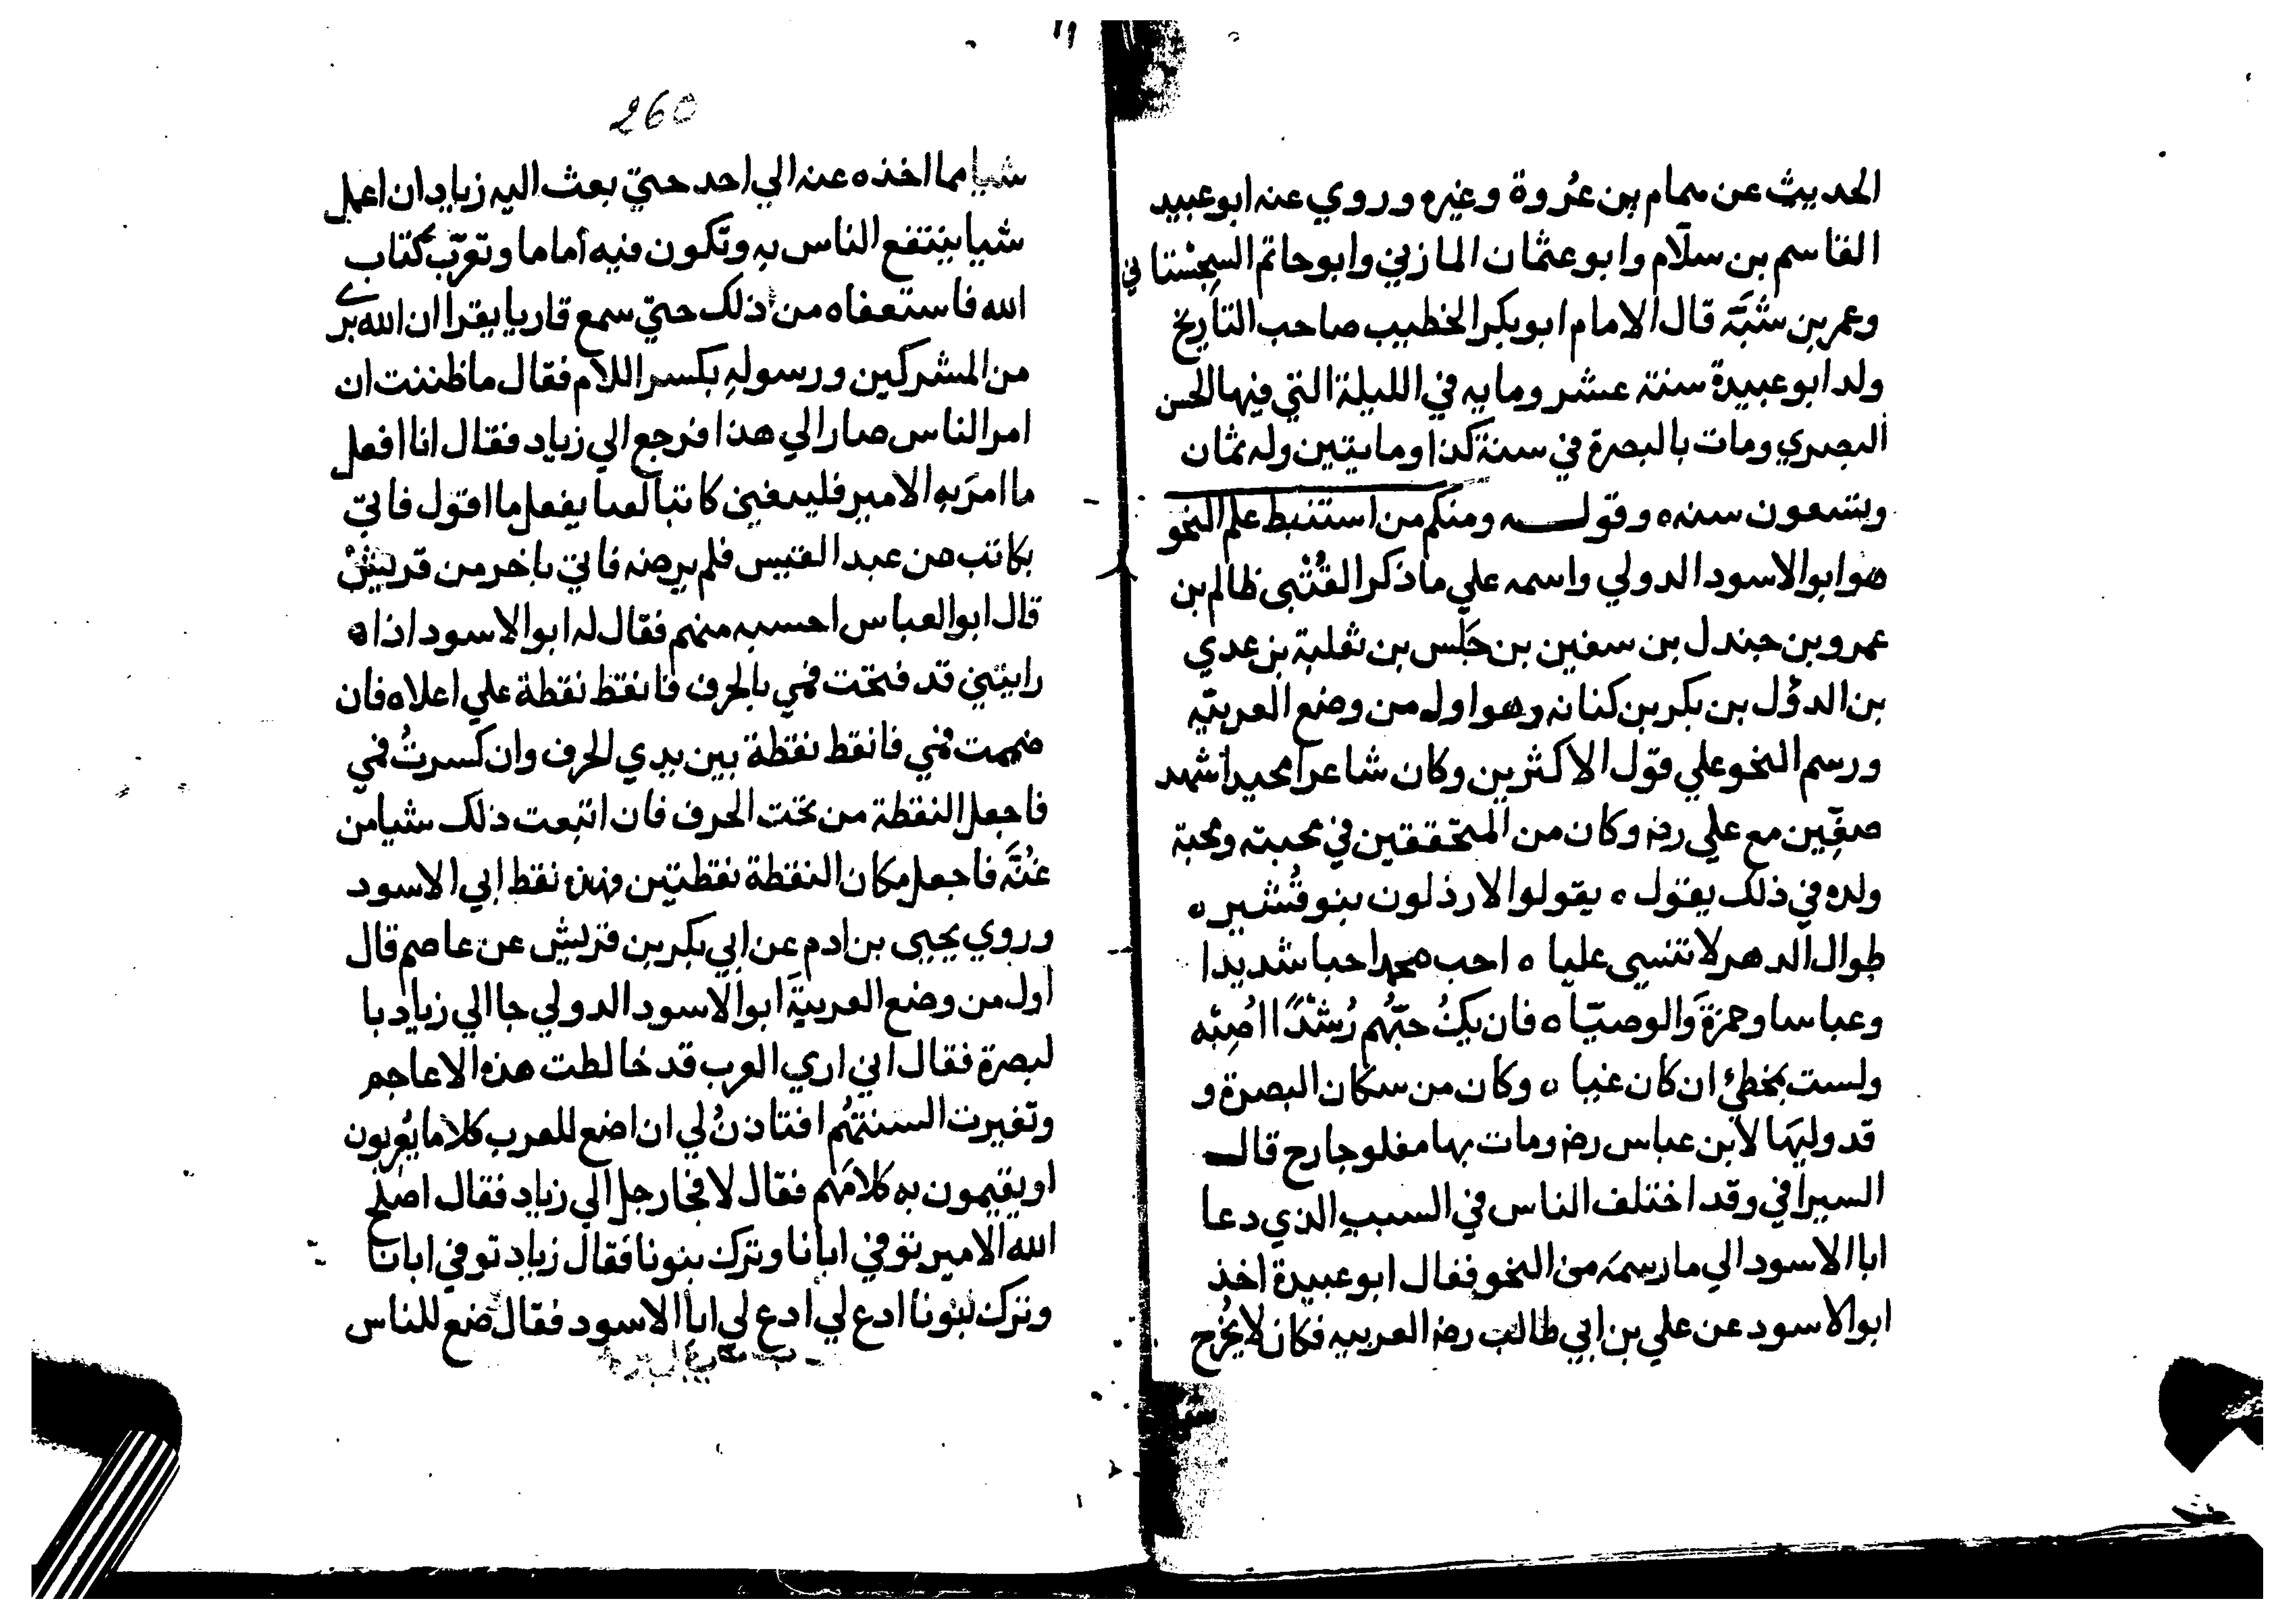 الحديث عن همام بن عُروة وغيره وروي عنه ابو عبيد
القاسم بن سلّام وابو عثمان المازني وابو حاتم السِجِسْتاني
وعمر بن شَبَّة قال الامام ابو بكر الخطيب صاحب التاريخ
ولد ابو عبيدة سنة عشر ومايه في الليلة التي فيها الحسن
البصري ومات بالبصرة في سنة كذا ومايتين وله ثمان
وتسعون سنه ٥ وقوله ومنكم من استنبط علم النحو
هو ابو الاسود الدولي واسمه علي ما ذكر القُتْبى ظالم بن
عمرو بن جندل بن سفين بن حَلْس بن ثعلبة بن عدي
بن الدؤل بن بكر بن كنانه وهو اول من وضع العربيّه
ورسم النحو علي قول الاكثرين وكان شاعرا مجيدا شهد
صفّين مع علي رضه وكان من المتحققين في محبته ومحبة
ولده في ذلك يقول ٥ يقولوا الارذلون بنو قُشَير ٥
طوال الدهر لا تنسى عليا ٥ احب محمدا حبا شديدا
وعباسا وحمزةَ والوصيّا ٥ فان يكُ حبّهُم رُشْدًا اصِبْه
ولست بمخطئ ان كان غيا ٥ وكان من سكان البصرة و
قد وليَها لابن عباس رضه ومات بها مفلوجا رح قال
السيرافي وقد اختلف الناس في السبب الذي دعا
ابا الاسود الي ما رسمَه من النحو فقال ابو عبيدة اخذ
ابو الاسود عن علي بن ابي طالب رضه العربيه فكان لا يُخرج
260
شيا مما اخذه عنه الي احد حتي بعث اليه زياد ان اعمل
شيا ينتفع الناس به وتكون فيه أماما وتعرّب كتاب
الله فاستعفاه من ذلك حتي سمع قاريا يقرا ان الله بري
من المشركين ورسولِه بكسر اللام فقال ما ظننت ان
امر الناس صار الي هذا فرجع الي زياد فقال انا افعل
ما امرَ به الامير فليبغيني كاتبا لعبا يفعل ما اقول فاتي
بكاتب من عبد القيس فلم يرضه فاتي باخر من قريش
قال ابو العباس احسبه منهم فقال له ابو الاسود اذا ٥
رايتني قد فتحت فمي بالحرف فانقط نقطة علي اعلاه فان
ضممت فمي فانقط نقطة بين يدي الحرف وان كسرتُ فمي
فاجعل النقطة من تحت الحرف فان اتبعت ذلك شيا من
غنُنَّه فاجعل مكان النقطة نقطتين فهذه نقط ابي الاسود
وروي يحيى بن ادم عن ابي بكر بن قريش عن عاصم قال
اول من وضع العربيةَ ابو الاسود الدولي جا الي زياد با
لبصرة فقال اني اري العرب قد خالطت هذه الاعاجم
وتغيرت السنتهُم افتاذنُ لي ان اضع للعرب كلاما يُعْربون
او يقيمون به كلامَهم فقال لا فجا رجل الي زياد فقال اصلح
الله الامير توفي ابانا وترك بنونا فقال زياد توفي ابانا
وترك بنونا ادع لي ادع لي ابا الاسود فقال ضع للناس